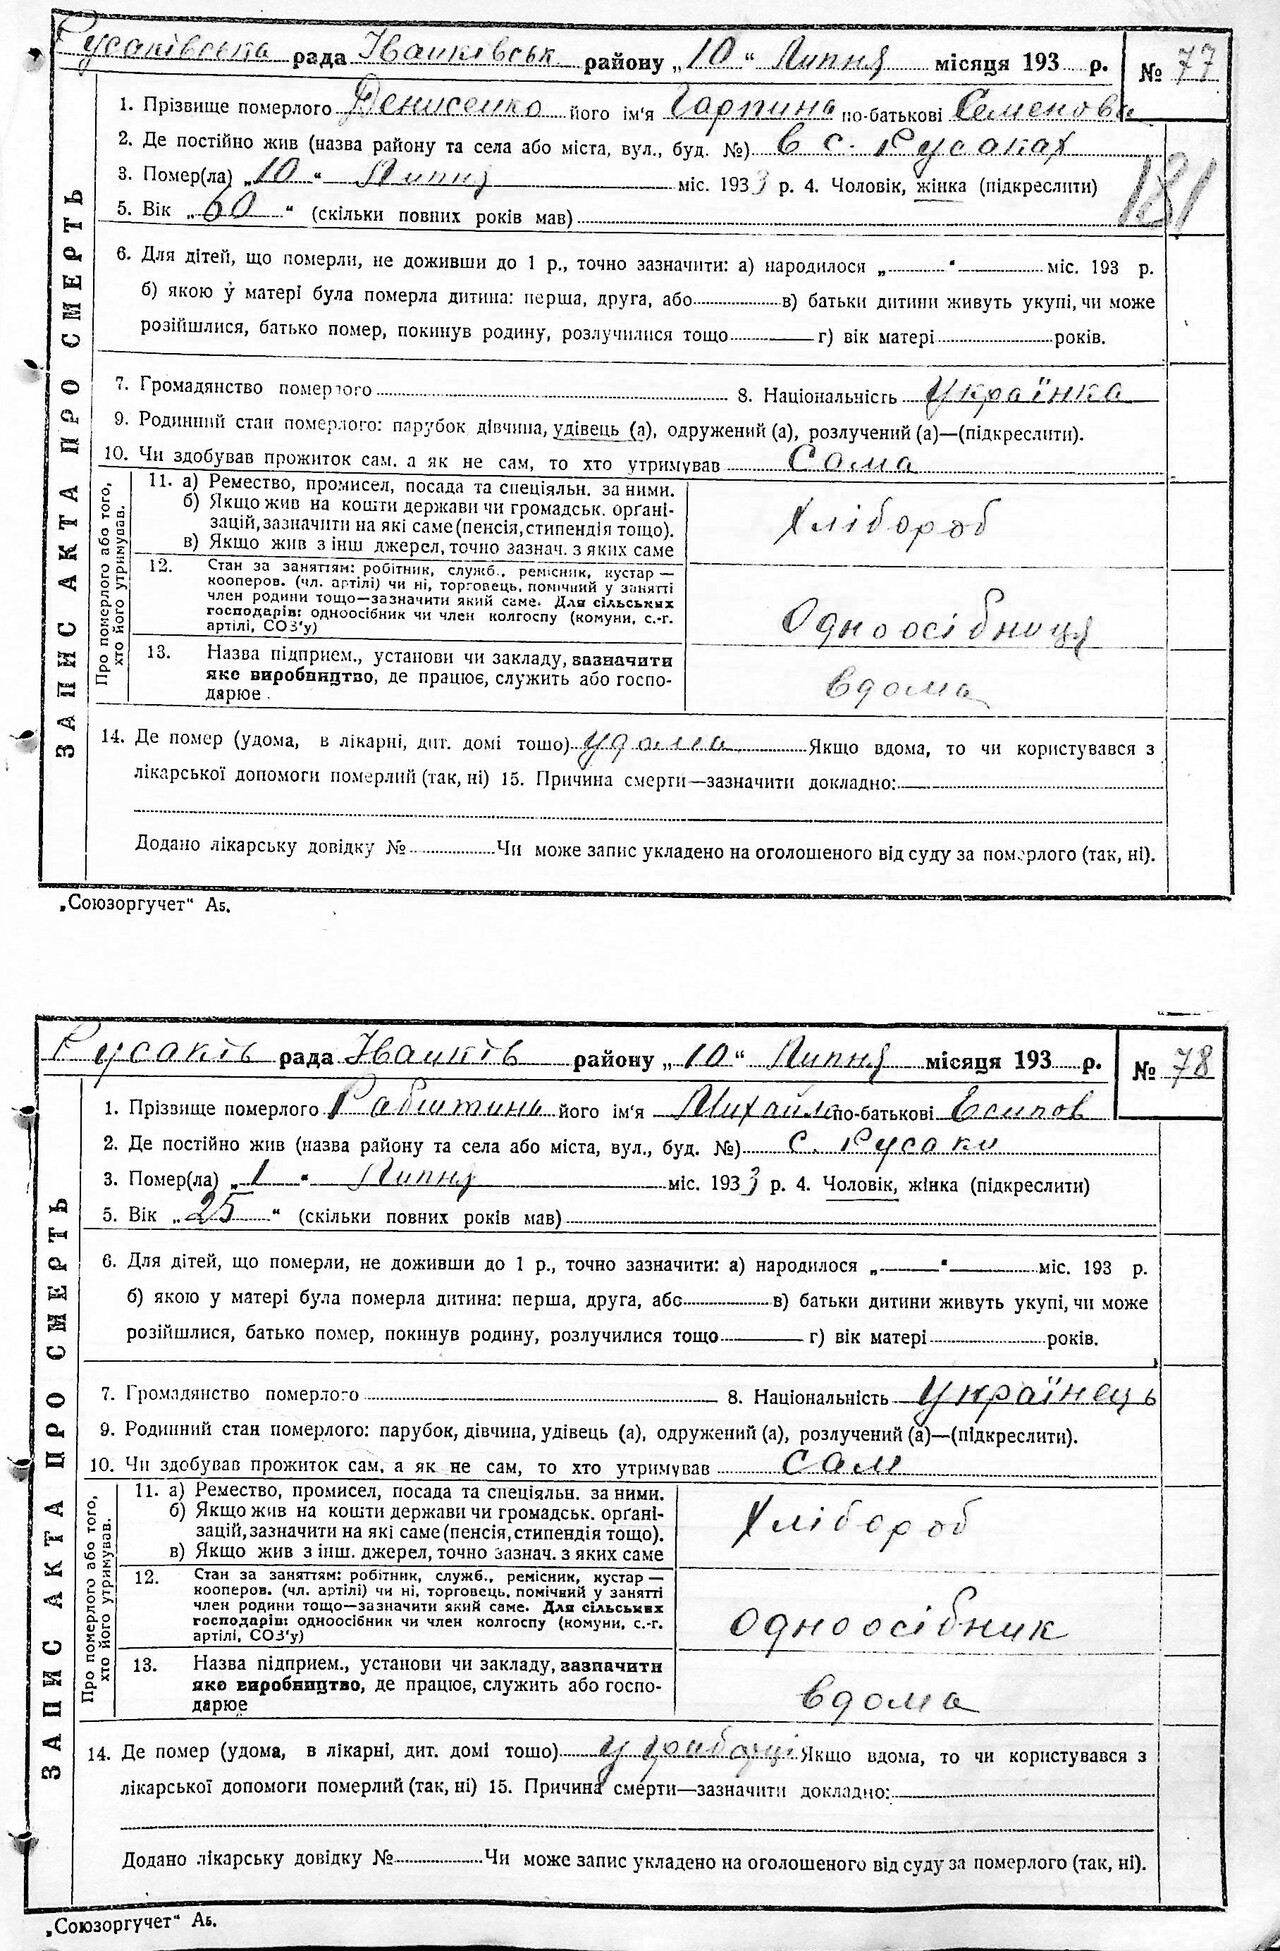 Русаківська рада Іванківськ району „10“ Липня місяця 193 р. № 77
1. Прізвище померлого Денисенко його ім'я Гарпина по-батькові Семеновна
2. Де постійно жив (назва району та села або міста, вул., буд. №) в с. Русаках
3. Помер(ла) „10“ Липня міс. 1933 р. 4. Чоловік, жінка (підкреслити)
181
5. Вік „60“ (скільки повних років мав)
6. Для дітей, що померли, не доживши до 1 р., точно зазначити: а) народилося „ “ міс. 193 р.
б) якою у матері була померла дитина: перша, друга, або в) батьки дитини живуть укупі, чи може
розійшлися, батько помер, покинув родину, розлучилися тощо г) вік матері років.
7. Громадянство померлого 8. Національність Українка
9. Родинний стан померлого: парубок дівчина, удівець (а), одружений (а), розлучений (а)—(підкреслити).
10. Чи здобував прожиток сам, а як не сам, то хто утримував Сама
Про померлого або того, хто його утримував.
11. а) Ремество, промисел, посада та спеціяльн. за ними.
б) Якщо жив на кошти держави чи громадськ. орґані-
зацій, зазначити на які саме (пенсія, стипендія тощо).
в) Якщо жив з інш джерел, точно зазнач. з яких саме
Хлібороб
12. Стан за заняттям: робітник, служб., ремісник, кустар —
кооперов. (чл. артілі) чи ні, торговець, помічний у занятті
член родини тощо—зазначити який саме. Для сільських
господарів: одноосібник чи член колгоспу (комуни, с.-г.
артілі, СОЗ'у)
Одноосібниця
13. Назва підприєм., установи чи закладу, зазначити
яке виробництво, де працює, служить або госпо-
дарює
вдома
14. Де помер (удома, в лікарні, дит. домі тошо) удома Якщо вдома, то чи користувався з
лікарської допомоги померлий (так, ні) 15. Причина смерти—зазначити докладно:
Додано лікарську довідку № Чи може запис укладено на оголошеного від суду за померлого (так, ні).
ЗАПИС АКТА ПРО СМЕРТЬ
„Союзоргучет“ А5.
Русаків рада Іванків району „10“ Липня місяця 193 р. № 78
1. Прізвище померлого його ім'я Михайло по-батькові Есипов
2. Де постійно жив (назва району та села або міста, вул., буд. №) с. Русаки
3. Помер(ла) „1“ Липня міс. 1933 р. 4. Чоловік, жінка (підкреслити)
5. Вік „25“ (скільки повних років мав)
6. Для дітей, що померли, не доживши до 1 р., точно зазначити: а) народилося „ “ міс. 193 р.
б) якою у матері була померла дитина: перша, друга, абс в) батьки дитини живуть укупі, чи може
розійшлися, батько помер, покинув родину, розлучилися тощо г) вік матері років.
7. Громадянство померлого 8. Національність Українець
9. Родинний стан померлого: парубок, дівчина, удівець (а), одружений (а), розлучений (а)—(підкреслити).
10. Чи здобував прожиток сам, а як не сам, то хто утримував сам
Про померлого або того, хто його утримував.
11. а) Ремество, промисел, посада та спеціяльн. за ними.
б) Якщо жив на кошти держави чи громадськ. орґані-
зацій, зазначити на які саме (пенсія, стипендія тощо).
в) Якщо жив з інш. джерел, точно зазнач. з яких саме
Хлібороб
12. Стан за заняттям: робітник, служб., ремісник, кустар —
кооперов. (чл. артілі) чи ні, торговець, помічний у занятті
член родини тощо—зазначити який саме. Для сільських
господарів: одноосібник чи член колгоспу (комуни, с.-г.
артілі, СОЗ'у)
одноосібник
13. Назва підприєм., установи чи закладу, зазначити
яке виробництво, де працює, служить або госпо-
дарює
вдома
14. Де помер (удома, в лікарні, дит. домі тошо) у Якщо вдома, то чи користувався з
лікарської допомоги померлий (так, ні) 15. Причина смерти—зазначити докладно:
Додано лікарську довідку № Чи може запис укладено на оголошеного від суду за померлого (так, ні).
ЗАПИС АКТА ПРО СМЕРТЬ
„Союзоргучет“ А5.